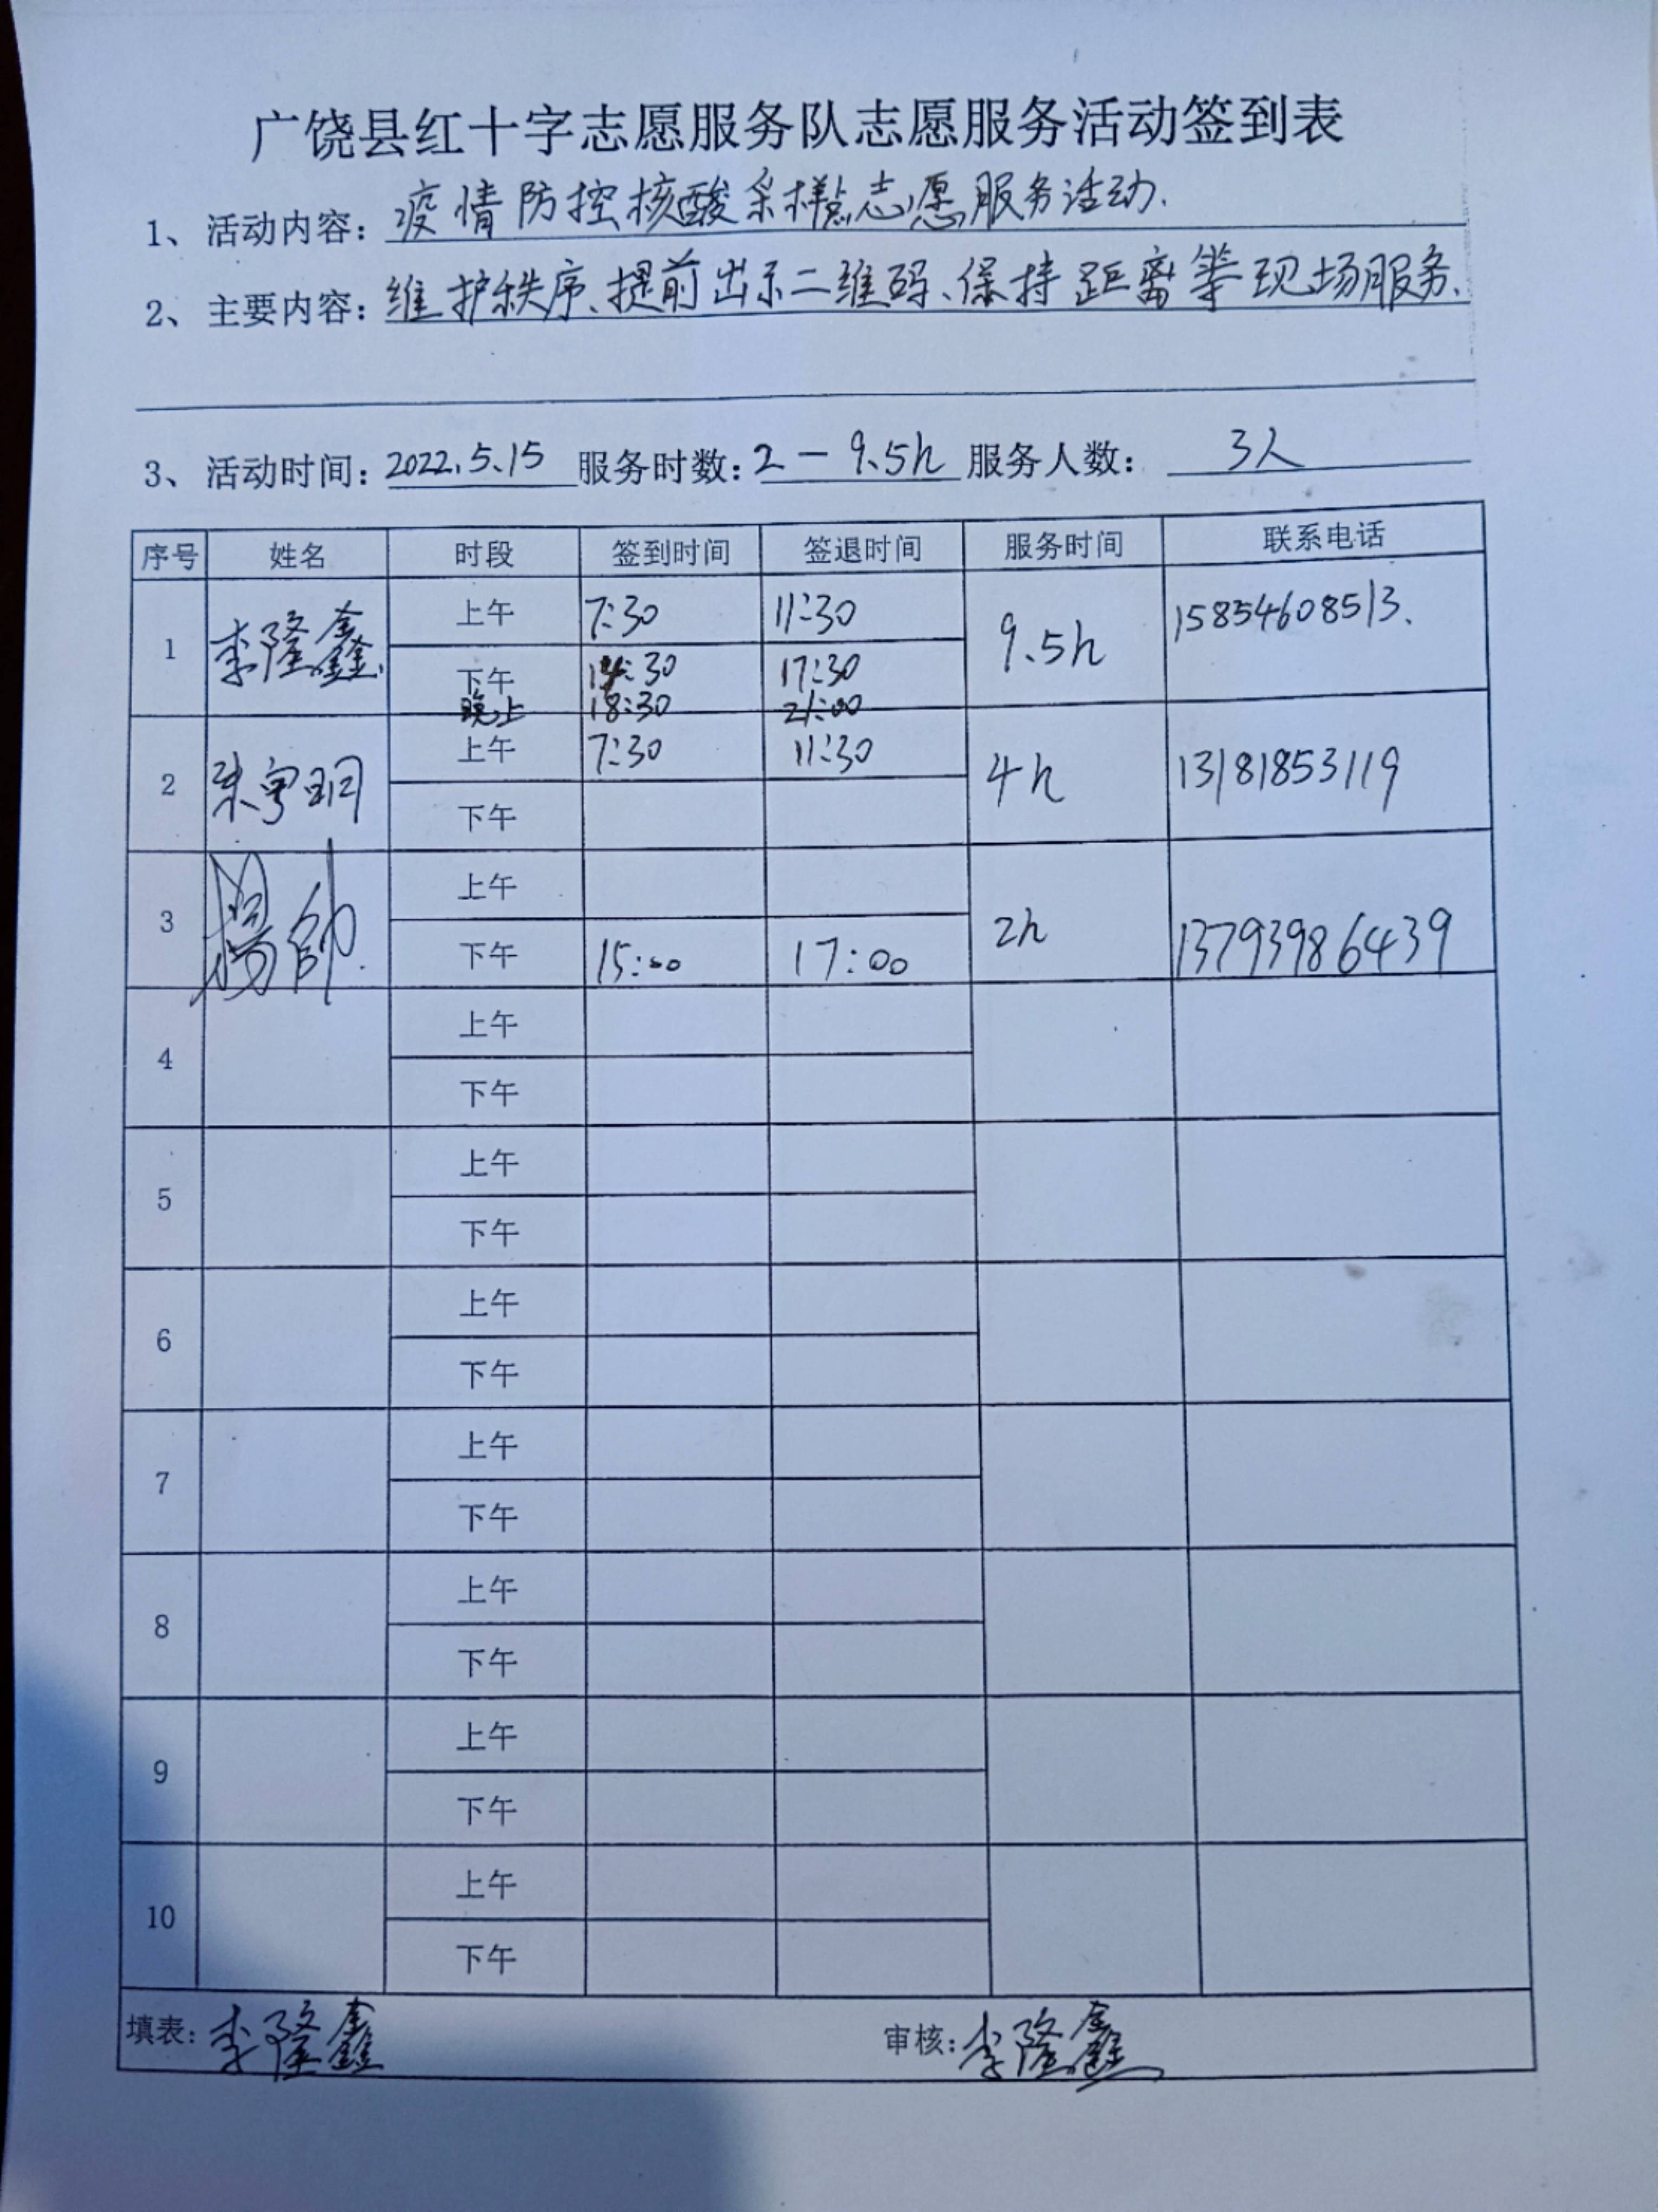 广饶县红十字志愿服务队志愿服务活动签到表
1、活动内容：疫情防控核酸采样点志愿服务活动.
2、主要内容：维护秩序、提前出示二维码、保持距离等现场服务.
3、活动时间：2022.5.15 服务时数：2－9.5h 服务人数：3人
序号 姓名 时段 签到时间 签退时间 服务时间 联系电话
1 李隆鑫. 上午 7:30 11:30 9.5h 15854608513.
下午 14:30 17:30
晚上 18:30 21:00
2 上午 7:30 11:30 4h 13181853119
下午
3 楊帥. 上午 2h 13793986439
下午 15:00 17:00
4 上午
下午
5 上午
下午
6 上午
下午
7 上午
下午
8 上午
下午
9 上午
下午
10 上午
下午
填表：李隆鑫 审核：李隆鑫